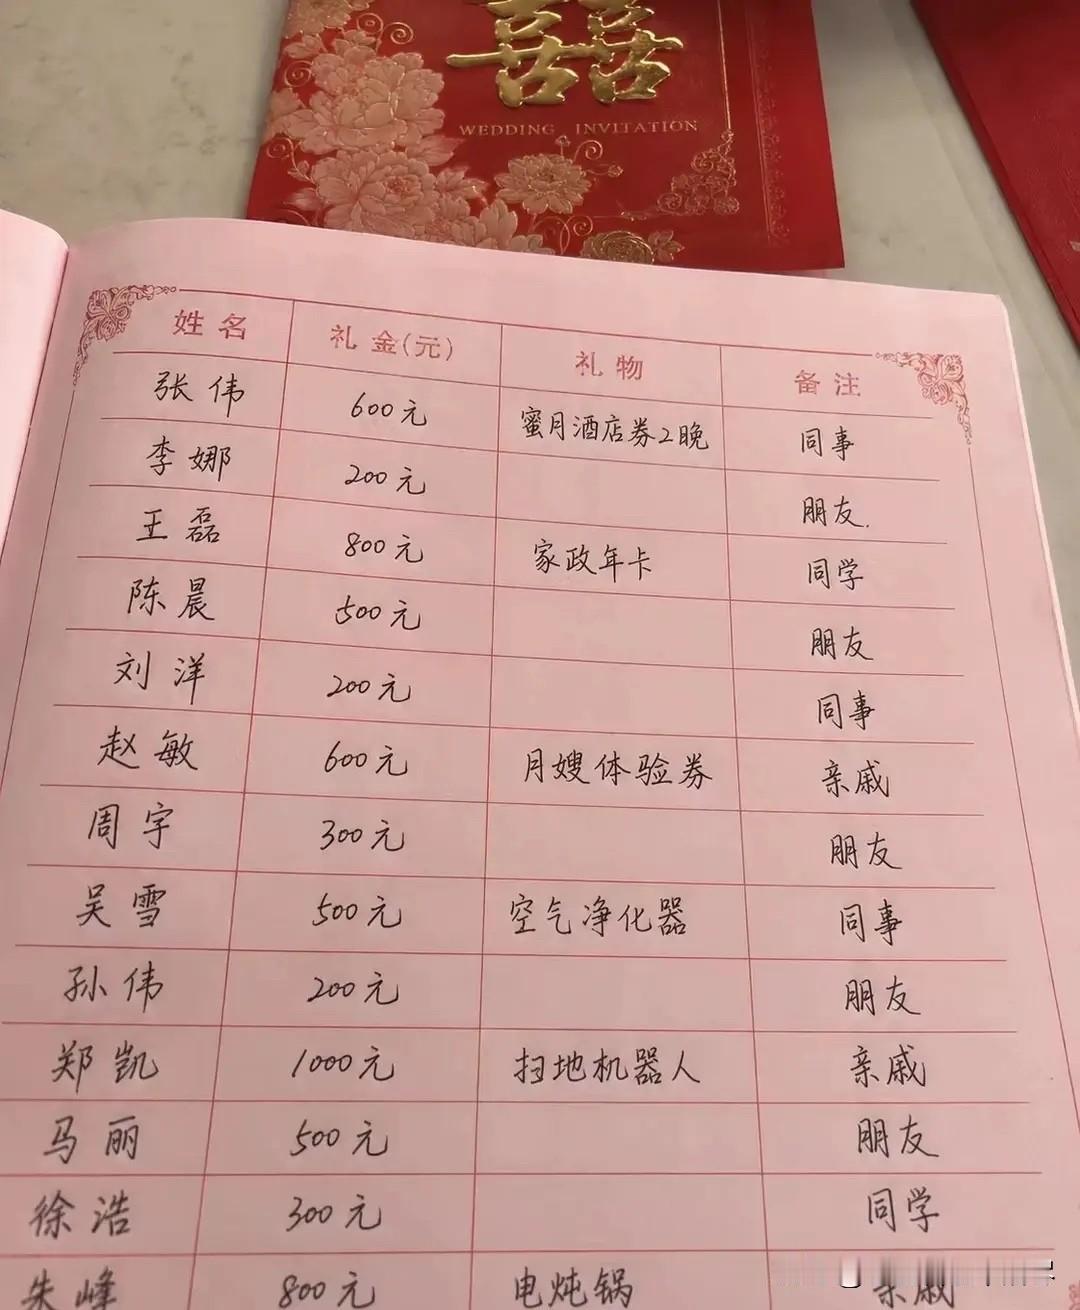 囍
WEDDING INVITATION
姓名 礼金(元) 礼物 备注
张伟 600元 蜜月酒店券2晚 同事
李娜 200元 朋友.
王磊 800元 家政年卡 同学
陈晨 500元 朋友
刘洋 200元 同事
赵敏 600元 月嫂体验券 亲戚
周宇 300元 朋友
吴雪 500元 空气净化器 同事
孙伟 200元 朋友
郑凯 1000元 扫地机器人 亲戚
马丽 500元 朋友
徐浩 300元 同学
朱峰 800元 电炖锅 亲戚